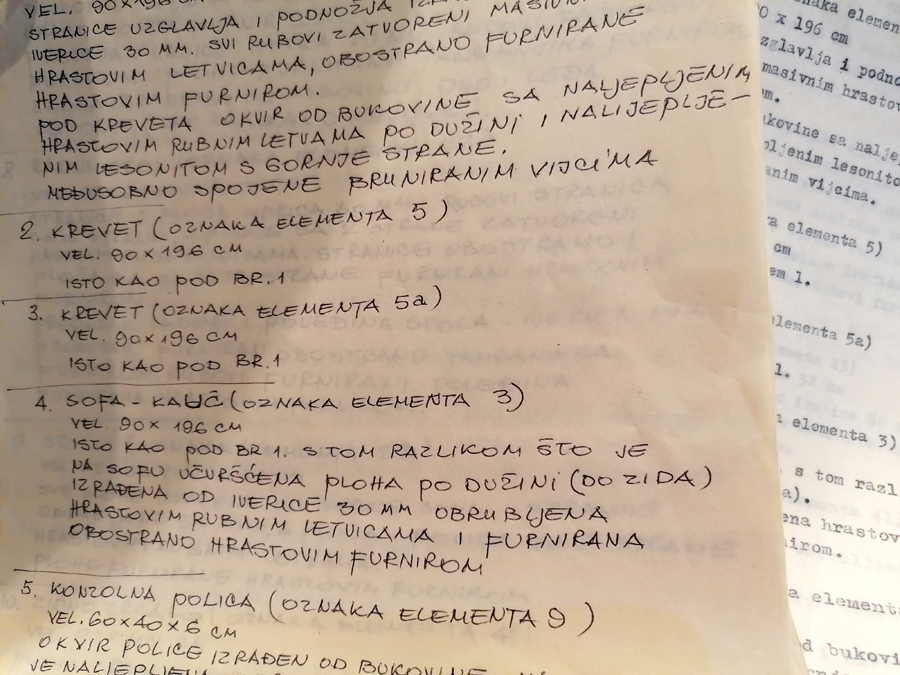 VEL. 90×196 CM
STRANICE UZGLAVJA I PODNOŽJA
IVERICE 30 MM. SVI RUBOVI ZATVORENI MASIVNIM
HRASTOVIM LETVICAMA, OBOSTRANO FURNIRANE
HRASTOVIM FURNIROM.
POD KREVETA OKVIR OD BUKOVINE SA NALJEPLJENIM
HRASTOVIM RUBNIM LETVAMA PO DUŽINI I NALIJEPLJE-
NIM LESONITOM S GORNJE STRANE.
MEĐUSOBNO SPOJENE BRUNIRANIM VIJCIMA
2. KREVET (OZNAKA ELEMENTA 5)
VEL. 90×196 CM
ISTO KAO POD BR. 1
3. KREVET (OZNAKA ELEMENTA 5a)
VEL. 90×196 CM
ISTO KAO POD BR. 1
4. SOFA - KAUČ (OZNAKA ELEMENTA 3)
VEL. 90×196 CM
ISTO KAO POD BR 1. S TOM RAZLIKOM ŠTO JE
NA SOFU UČVRŠĆENA PLOHA PO DUŽINI (DO ZIDA)
IZRAĐENA OD IVERICE 30 MM OBRUBLJENA
HRASTOVIM RUBNIM LETVICAMA I FURNIRANA
OBOSTRANO HRASTOVIM FURNIROM
5. KONZOLNA POLICA (OZNAKA ELEMENTA 9)
VEL. 60×40×6 CM
OKVIR POLICE IZRAĐEN OD BUKOVINE
JE NALJEPLJENA
naka elemen
0 x 196 cm
zglavlja i podno
masivnim hrastov
om.
ukovine sa nalje
pljenim lesonito
anim vijcima.
a elementa 5)
cm
em 1.
elementa 5a)
1.
a elementa 3)
s tom razl
a).
ena hrastov
nirom.
a elementa
d bukovi